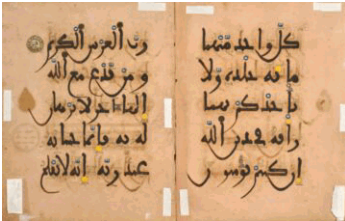 كل واحد منهما
مائة جلدة ولا
تأخذكم بهما
رأفة في دين الله
إن كنتم تؤمنون
رب العرش الكريم
ومن يدع مع الله
إلها آخر لا برهان
له به فإنما حسابه
عند ربه إنه لا يفلح